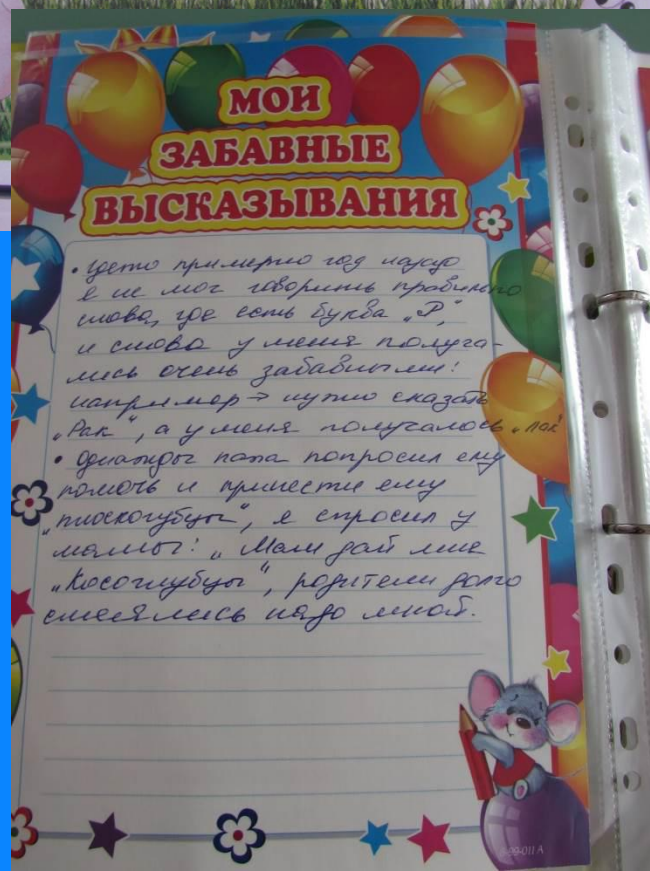 МОИ
ЗАБАВНЫЕ
ВЫСКАЗЫВАНИЯ
• гдето примерно год назад
я не мог говорить правильно
слова, где есть буква „Р",
и слова у меня получа-
лись очень забавными:
например → нужно сказать
„Рак", а у меня получалось „лак"
• Однажды папа попросил ему
помочь и принести ему
„плоскогубцы", я спросил у
мамы: „Мам дай мне
„Косоглубцы", родители долго
смеялись надо мной.